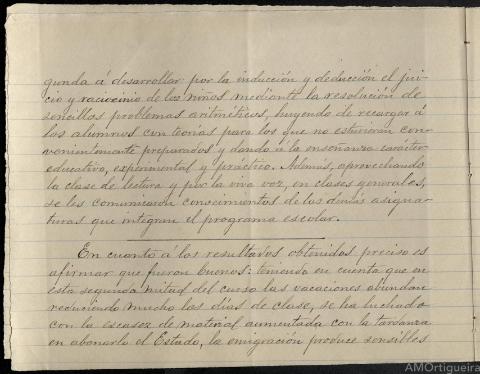 gunda á desarrollar por la inducción y deducción el jui-
cio y raciocinio de los niños mediante la resolución de
sencillos problemas aritméticos, huyendo de recargar á
los alumnos con teorías para los que no estuvieran con-
venientemente preparados y dando á la enseñanza carácter
educativo, experimental y práctico. Además, aprovechando
la clase de lectura y por la viva voz, en clases generales,
se les comunicaron conocimientos de las demás asigna-
turas que integran el programa escolar.
En cuanto á los resultados obtenidos preciso es
afirmar que fueron buenos: teniendo en cuenta que en
esta segunda mitad del curso las vacaciones abundan
reduciendo mucho los días de clase, se ha luchado
con la escasez de material aumentada con la tardanza
en abonarlo el Estado, la emigración produce sensibles
AMOrtigueira